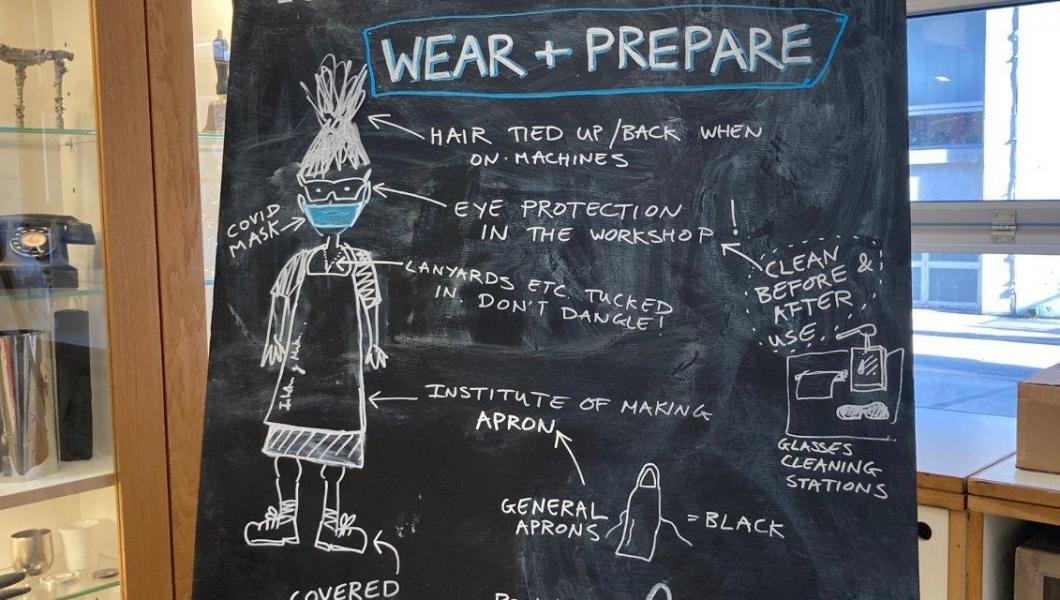 WEAR + PREPARE
HAIR TIED UP/BACK WHEN
ON MACHINES
EYE PROTECTION
IN THE WORKSHOP !
COVID
MASK
CLEAN
BEFORE &
AFTER
USE
LANYARDS ETC. TUCKED
IN. DON'T DANGLE!
INSTITUTE OF MAKING
APRON
GLASSES
CLEANING
STATIONS
GENERAL
APRONS
= BLACK
COVERED